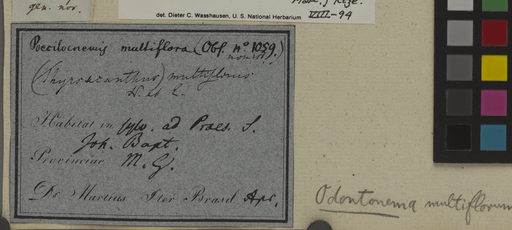 gen. nov.
det. Dieter C. Wasshausen, U. S. National Herbarium VIII-94
Poecilocnemis multiflora (Obs. n° 1059.)
(Thyrsacanthus) multiflorus
N. et E.
Habitat in sylv. ad Praes. S.
Joh. Bapt.
Provinciae M. G.
Dr. Martius Iter Brasil Apr.
Odontonema multiflorum